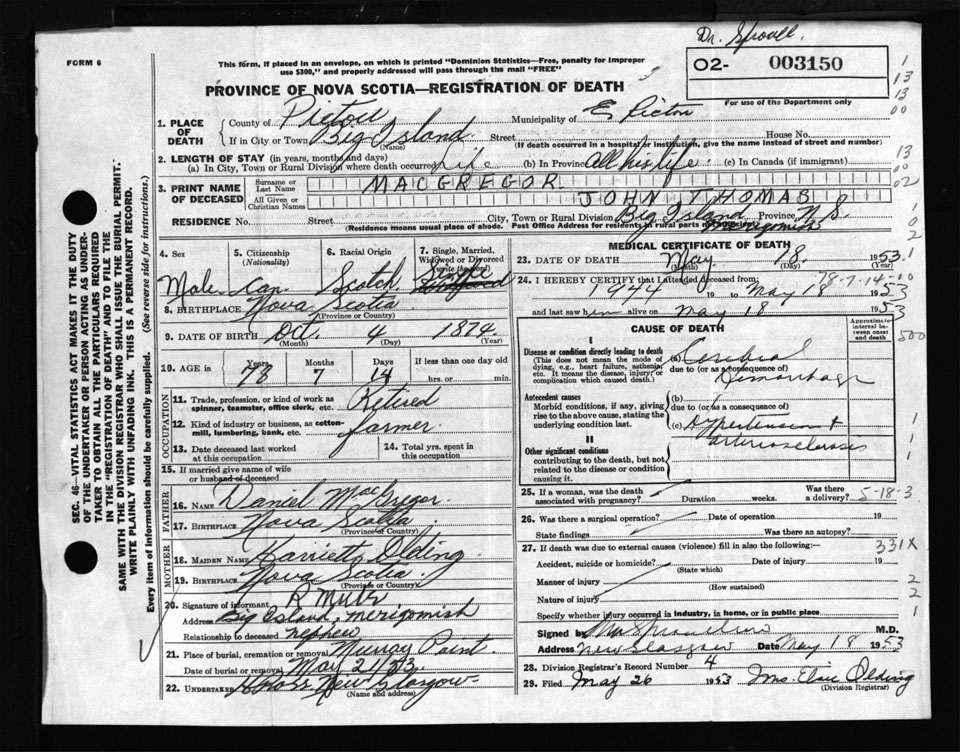 Dr. Sproull.
FORM 6
This form, if placed in an envelope, on which is printed "Dominion Statistics—Free, penalty for improper
use $300," and properly addressed will pass through the mail "FREE"
O2- 003150
PROVINCE OF NOVA SCOTIA—REGISTRATION OF DEATH
For use of the Department only
1. PLACE OF DEATH
County of Pictou Municipality of E Pictou
If in City or Town Big Island (Name) Street House No.
(If death occurred in a hospital or institution, give the name instead of street and number)
2. LENGTH OF STAY (in years, months and days)
(a) In City, Town or Rural Division where death occurred Life (b) In Province All his life. (c) In Canada (if immigrant)
3. PRINT NAME OF DECEASED
Surname or Last Name MACGREGOR
All Given or Christian Names JOHN THOMAS
RESIDENCE No. Street City, Town or Rural Division Big Island Province N.S.
(Residence means usual place of abode. Post Office Address for residents in rural parts Merigomish
4. Sex Male
5. Citizenship (Nationality) Can.
6. Racial Origin Scotch
7. Single, Married, Widowed or Divorced (write the word) Single
8. BIRTHPLACE Nova Scotia
(Province or Country)
9. DATE OF BIRTH Oct. (Month) 4 (Day) 1874 (Year)
10. AGE in Years 78 Months 7 Days 14 If less than one day old hrs. or min.
OCCUPATION
11. Trade, profession, or kind of work as spinner, teamster, office clerk, etc. Retired
12. Kind of industry or business, as cotton-mill, lumbering, bank, etc. farmer
13. Date deceased last worked at this occupation
14. Total yrs. spent in this occupation
15. If married give name of wife or husband of deceased
FATHER
16. NAME Daniel MacGregor
17. BIRTHPLACE Nova Scotia
(Province or Country)
MOTHER
18. MAIDEN NAME Harriett Olding.
19. BIRTHPLACE Nova Scotia.
(Province or Country)
20. Signature of informant R Muir
Address Big Island, Merigomish
Relationship to deceased nephew
21. Place of burial, cremation or removal Murray Point.
Date of burial or removal May 21/53.
22. Undertaker New Glasgow
(Name and address)
MEDICAL CERTIFICATE OF DEATH
23. DATE OF DEATH May (Month) 18. (Day) 1953. (Year)
78-7-14-00
24. I HEREBY CERTIFY that I attended deceased from:
1944 to May 18 1953
and last saw him alive on May 18 1953
CAUSE OF DEATH
Approximate interval between onset and death
I
Disease or condition directly leading to death
(This does not mean the mode of dying, e.g., heart failure, asthenia, etc. It means the disease, injury, or complication which caused death.)
(a) Cerebral
due to (or as a consequence of)
Hemorrhage
Antecedent causes
Morbid conditions, if any, giving rise to the above cause, stating the underlying condition last.
(b)
due to (or as a consequence of)
(c) Hypertension &
arteriosclerosis
II
Other significant conditions
contributing to the death, but not related to the disease or condition causing it.
25. If a woman, was the death associated with pregnancy? Duration weeks. Was there a delivery? 5-18-3
26. Was there a surgical operation? Date of operation 19
State findings Was there an autopsy?
27. If death was due to external causes (violence) fill in also the following:— 331X
Accident, suicide or homicide? Date of injury 19
(State which)
Manner of injury
(How sustained)
Nature of injury
Specify whether injury occurred in industry, in home, or in public place
Signed by M.D.
Address New Glasgow Date May 18 1953
28. Division Registrar's Record Number 4
29. Filed May 26 1953 Mrs. Elsie Olding
(Division Registrar)
SEC. 46—VITAL STATISTICS ACT MAKES IT THE DUTY
OF THE UNDERTAKER OR PERSON ACTING AS UNDER-
TAKER TO OBTAIN ALL THE PARTICULARS REQUIRED
IN THE "REGISTRATION OF DEATH" AND TO FILE THE
SAME WITH THE DIVISION REGISTRAR WHO SHALL ISSUE THE BURIAL PERMIT.
WRITE PLAINLY WITH UNFADING INK. THIS IS A PERMANENT RECORD.
Every item of information should be carefully supplied. (See reverse side for instructions.)
1
13
13
00
13
00
02
1
0
2
1
500
1
1
1
2
2
1